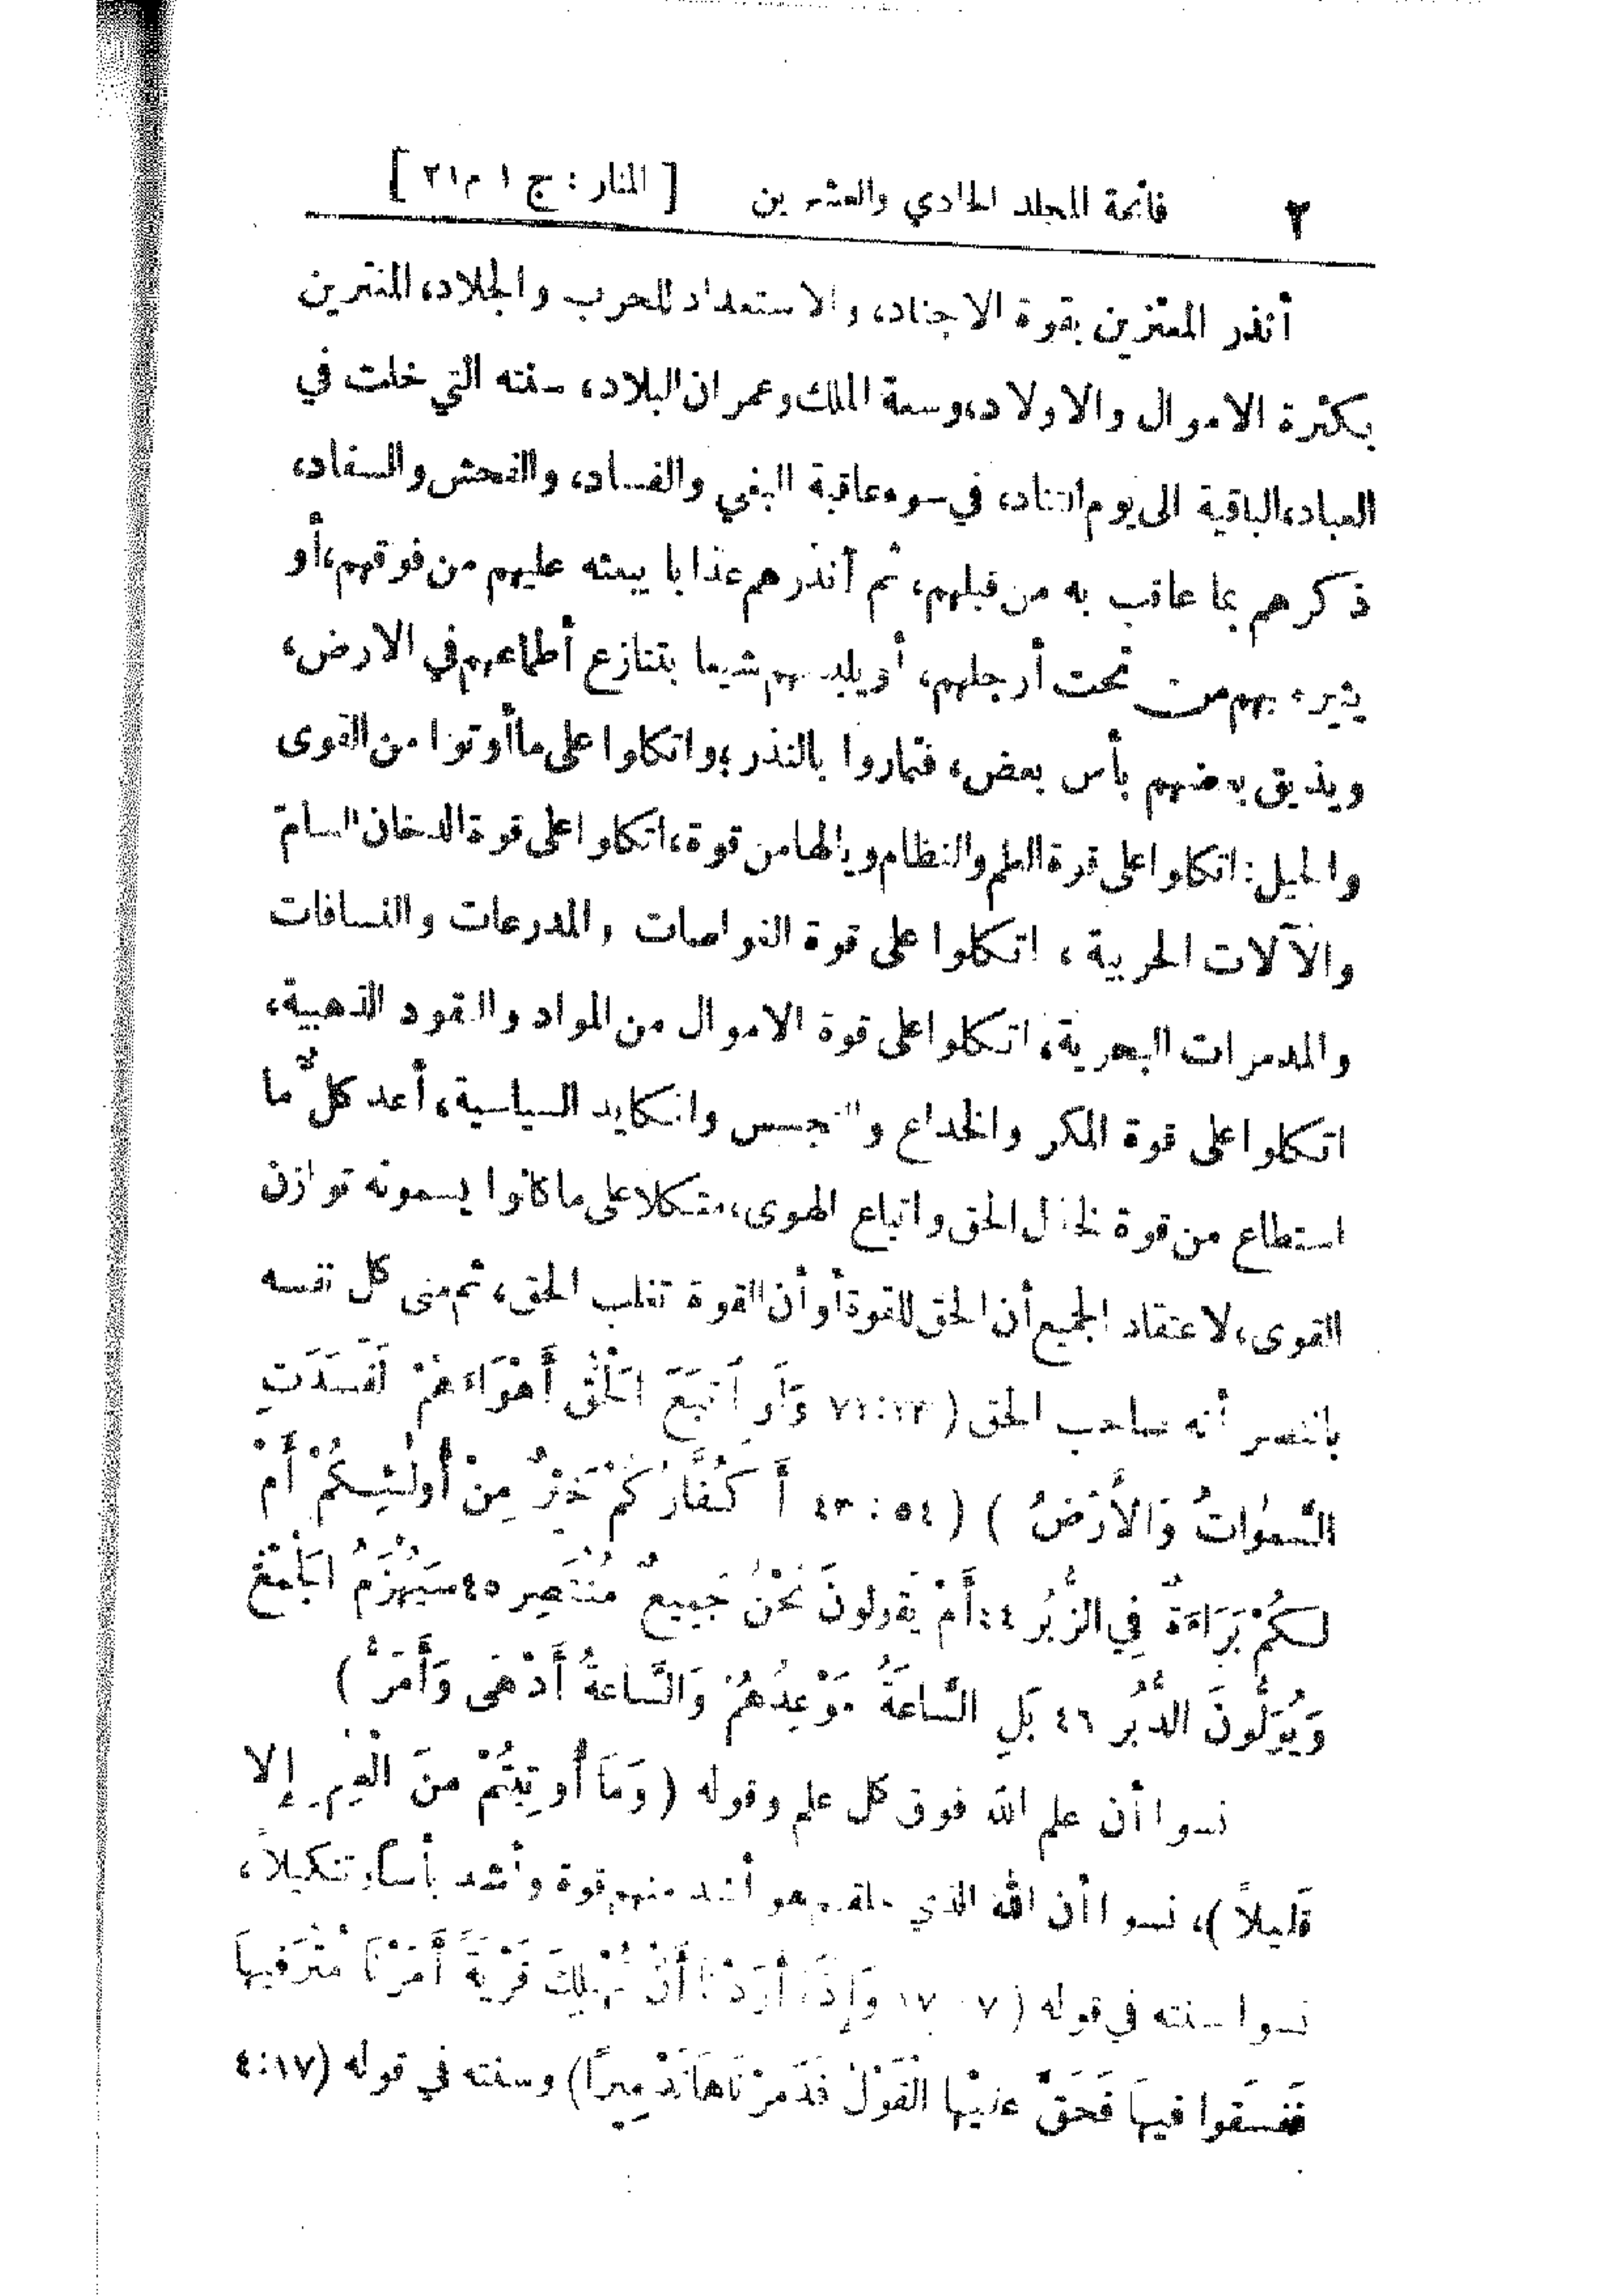 ٢ فاتحة المجلد الحادي والعشرين [ المنار : ج ١ م ٢١ ]
أنذر المعتزين بقوة الاجناد، والاستعداد للحرب والجلاد، المغترين
بكثرة الاموال والاولاد، وسعة الملك وعمران البلاد، سنته التي خلت في
العباد، الباقية الى يوم التناد، في سوء عاقبة البغي والفساد، والفحش والسفاد،
ذكرهم بما عاقب به من قبلهم، ثم أنذرهم عذابا يبعثه عليهم من فوقهم، أو
يثيره بهم من تحت أرجلهم، أو يلبسهم شيعا بتنازع أطماعهم في الارض،
ويذيق بعضهم بأس بعض، فتماروا بالنذر، واتكلوا على ما أوتوا من القوى
والحيل: اتكلوا على قوة العلم والنظام ويالها من قوة، اتكلوا على قوة الدخان السامّ
والآلات الحربية ، اتكلوا على قوة الغواصات والمدرعات والنسافات
والمدمرات البحرية، اتكلوا على قوة الاموال من المواد والنقود الذهبية،
اتكلوا على قوة المكر والخداع والتجسس والمكايد السياسية، أعد كلٌّ ما
استطاع من قوة لخذل الحق واتباع الهوى، متكلا على ما كانوا يسمونه توازن
القوى، لاعتقاد الجميع أن الحق للقوة أو أن القوة تغلب الحق، ثم منى كل نفسه
بالنصر أنه صاحب الحق ( ٧١:٢٣ وَلَوِ اتَّبَعَ الْحَقُّ أَهْوَاءَهُمْ لَفَسَدَتِ
السَّمٰوَاتُ وَالأَرْضُ ) ( ٥٤ : ٤٣ أَكُفَّارُكُمْ خَيْرٌ مِنْ أُولٰئِكُمْ أَمْ
لَكُمْ بَرَاءَةٌ فِي الزُّبُر ٤٤ أَمْ يَقُولونَ نَحْنُ جَمِيعٌ مُنْتَصِر ٤٥ سَيُهْزَمُ الْجَمْعُ
وَيُوَلُّونَ الدُّبُر ٤٦ بَلِ السَّاعَةُ مَوْعِدُهُمْ وَالسَّاعَةُ أَدْهَى وَأَمَرُّ )
نسوا أن علم الله فوق كل علم وقوله ( وَمَا أُوتِيتُمْ مِنَ الْعِلْمِ إِلا
قَلِيلاً )، نسوا أن الله الذي خلقهم هو أشد منهم قوة وأشد بأسا وتنكيلاً،
نسوا سنته في قوله ( ١٧ وَإِذَا أَرَدْنَا أَنْ نُهْلِكَ قَرْيَةً أَمَرْنَا مُتْرَفِيهَا
فَفَسَقُوا فِيهَا فَحَقَّ عَلَيْهَا الْقَوْلُ فَدَمَّرْنَاهَا تَدْمِيراً) وسنته في قوله (٤:١٧